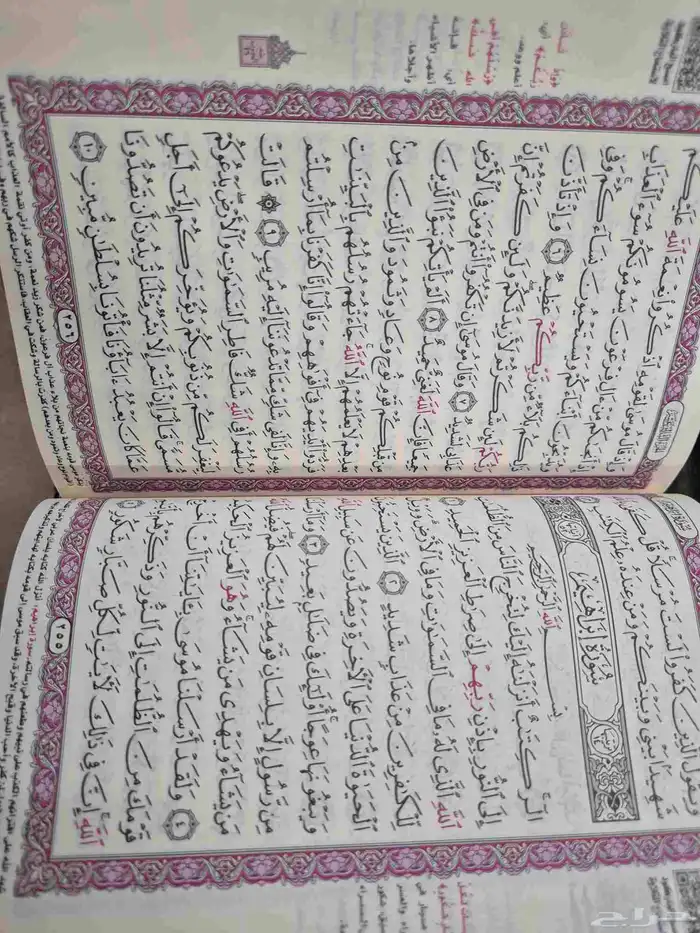 وَيَقُولُ ٱلَّذِينَ كَفَرُوا۟ لَسْتَ مُرْسَلًا قُلْ كَفَىٰ
شَهِيدًۢا بَيْنِى وَبَيْنَكُمْ وَمَنْ عِندَهُۥ عِلْمُ ٱلْكِتَٰبِ
سُورَةُ إِبْرَاهِيمَ
بِسْمِ ٱللَّهِ ٱلرَّحْمَٰنِ ٱلرَّحِيمِ
الٓر كِتَٰبٌ أَنزَلْنَٰهُ إِلَيْكَ لِتُخْرِجَ ٱلنَّاسَ مِنَ ٱلظُّلُمَٰتِ
إِلَى ٱلنُّورِ بِإِذْنِ رَبِّهِمْ إِلَىٰ صِرَٰطِ ٱلْعَزِيزِ ٱلْحَمِيدِ ١
ٱللَّهِ ٱلَّذِى لَهُۥ مَا فِى ٱلسَّمَٰوَٰتِ وَمَا فِى ٱلْأَرْضِ وَوَيْلٌ
لِّلْكَٰفِرِينَ مِنْ عَذَابٍ شَدِيدٍ ٢ ٱلَّذِينَ يَسْتَحِبُّونَ
ٱلْحَيَوٰةَ ٱلدُّنْيَا عَلَى ٱلْءَاخِرَةِ وَيَصُدُّونَ عَن سَبِيلِ ٱللَّهِ
وَيَبْغُونَهَا عِوَجًا أُو۟لَٰٓئِكَ فِى ضَلَٰلٍۭ بَعِيدٍ ٣ وَمَآ أَرْسَلْنَا
مِن رَّسُولٍ إِلَّا بِلِسَانِ قَوْمِهِۦ لِيُبَيِّنَ لَهُمْ فَيُضِلُّ ٱللَّهُ
مَن يَشَآءُ وَيَهْدِى مَن يَشَآءُ وَهُوَ ٱلْعَزِيزُ ٱلْحَكِيمُ
٤ وَلَقَدْ أَرْسَلْنَا مُوسَىٰ بِـَٔايَٰتِنَآ أَنْ أَخْرِجْ
قَوْمَكَ مِنَ ٱلظُّلُمَٰتِ إِلَى ٱلنُّورِ وَذَكِّرْهُم بِأَيَّىٰمِ
ٱللَّهِ إِنَّ فِى ذَٰلِكَ لَءَايَٰتٍ لِّكُلِّ صَبَّارٍ شَكُورٍ ٥
٢٥٥
وَإِذْ قَالَ مُوسَىٰ لِقَوْمِهِ ٱذْكُرُوا۟ نِعْمَةَ ٱللَّهِ عَلَيْكُمْ
إِذْ أَنجَىٰكُم مِّنْ ءَالِ فِرْعَوْنَ يَسُومُونَكُمْ سُوٓءَ ٱلْعَذَابِ
وَيُذَبِّحُونَ أَبْنَآءَكُمْ وَيَسْتَحْيُونَ نِسَآءَكُمْ وَفِى
ذَٰلِكُم بَلَآءٌ مِّن رَّبِّكُمْ عَظِيمٌ ٦ وَإِذْ تَأَذَّنَ
رَبُّكُمْ لَئِن شَكَرْتُمْ لَأَزِيدَنَّكُمْ وَلَئِن كَفَرْتُمْ إِنَّ
عَذَابِى لَشَدِيدٌ ٧ وَقَالَ مُوسَىٰٓ إِن تَكْفُرُوٓا۟ أَنتُمْ وَمَن فِى ٱلْأَرْضِ
جَمِيعًا فَإِنَّ ٱللَّهَ لَغَنِىٌّ حَمِيدٌ ٨ أَلَمْ يَأْتِكُمْ نَبَؤُا۟ ٱلَّذِينَ
مِن قَبْلِكُمْ قَوْمِ نُوحٍ وَعَادٍ وَثَمُودَ وَٱلَّذِينَ مِنۢ
بَعْدِهِمْ لَا يَعْلَمُهُمْ إِلَّا ٱللَّهُ جَآءَتْهُمْ رُسُلُهُم بِٱلْبَيِّنَٰتِ
فَرَدُّوٓا۟ أَيْدِيَهُمْ فِىٓ أَفْوَٰهِهِمْ وَقَالُوٓا۟ إِنَّا كَفَرْنَا بِمَآ أُرْسِلْتُم
بِهِۦ وَإِنَّا لَفِى شَكٍّ مِّمَّا تَدْعُونَنَآ إِلَيْهِ مُرِيبٍ ٩ ۞ قَالَتْ
رُسُلُهُمْ أَفِى ٱللَّهِ شَكٌّ فَاطِرِ ٱلسَّمَٰوَٰتِ وَٱلْأَرْضِ يَدْعُوكُمْ
لِيَغْفِرَ لَكُم مِّن ذُنُوبِكُمْ وَيُؤَخِّرَكُمْ إِلَىٰٓ أَجَلٍ
مُّسَمًّى قَالُوٓا۟ إِنْ أَنتُمْ إِلَّا بَشَرٌ مِّثْلُنَا تُرِيدُونَ أَن تَصُدُّونَا
عَمَّا كَانَ يَعْبُدُ ءَابَآؤُنَا فَأْتُونَا بِسُلْطَٰنٍ مُّبِينٍ ١٠
٢٥٦
حراج